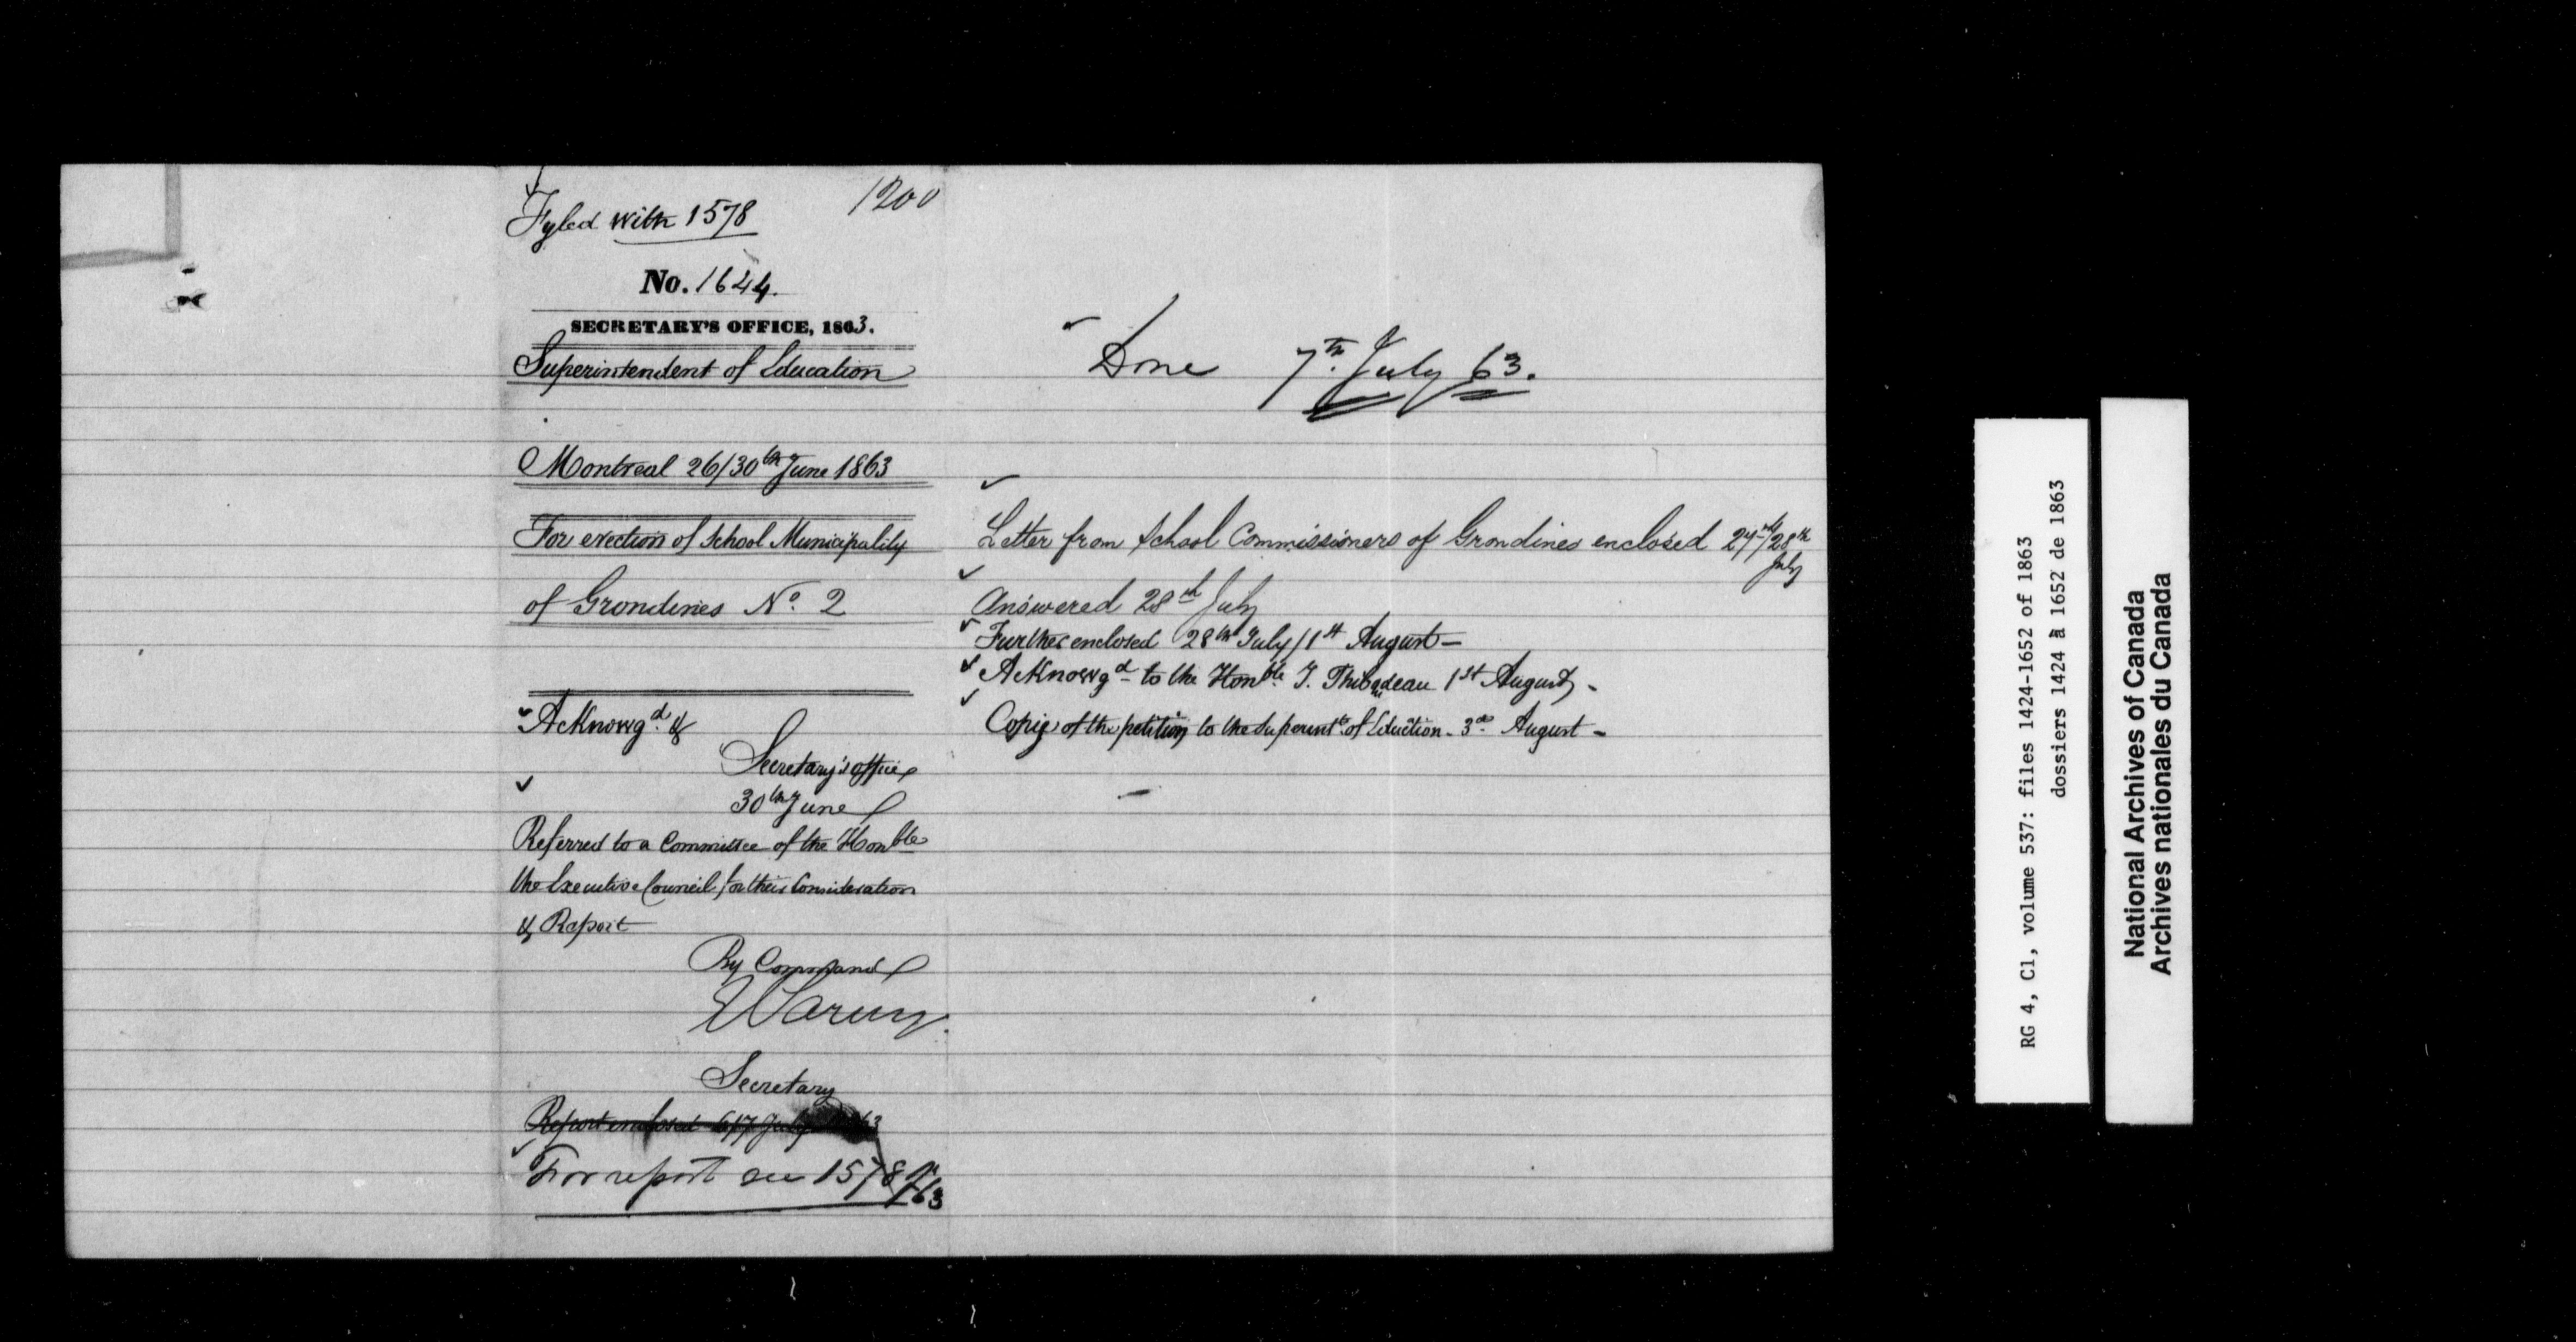 Fyled with 1578
1200
No. 1644.
SECRETARY'S OFFICE, 1863.
Superintendent of Education
Montreal 26/30th June 1863
For erection of School Municipality
of Grondines No. 2
Acknowgd. &
Secretary's office
30th June
Referred to a Committee of the Honble
the Executive Council for their Consideration
& Report
By Command
Secretary
Report enclosed 6/7 July 63
For report see 1578/63
Done 7th. July 63.
Letter from School Commissioners of Grondines enclosed 27th/28th
July
Answered 28th July
Further enclosed 28th July/1st August -
Acknowgd to the Honble. I. Thibaudeau 1st August -
Copy of the petition to the Superintt. of Eduction - 3d August -
RG 4, C1, volume 537: files 1424-1652 of 1863
dossiers 1424 à 1652 de 1863
National Archives of Canada
Archives nationales du Canada